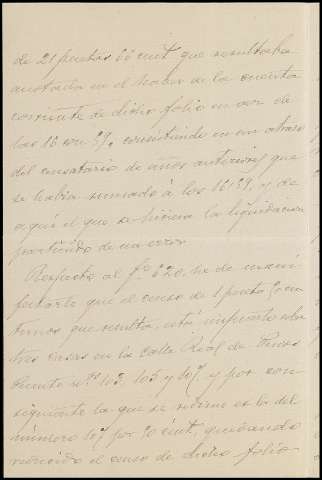 de 21 pesetas 66 cent. que resultaba
anotada en el haber de la cuenta
corriente de dicho folio en vez de
las 16 con 39, consistiendo en un atraso
del censatario de años anteriores que
se había sumado á los 16'39, y de
aquí el que se hiciera la liquidacion
partiendo de un error
Respecto al fº 620, he de mani-
festarle que el censo de 1 peseta
timos que resulta, está impuesto sobre
tres casas en la Calle Real de
nºs 103, 105 y 107, y por con-
siguiente la que se redime es la del
número 107 por 70 cent., quedando
reducido el censo de dicho folio